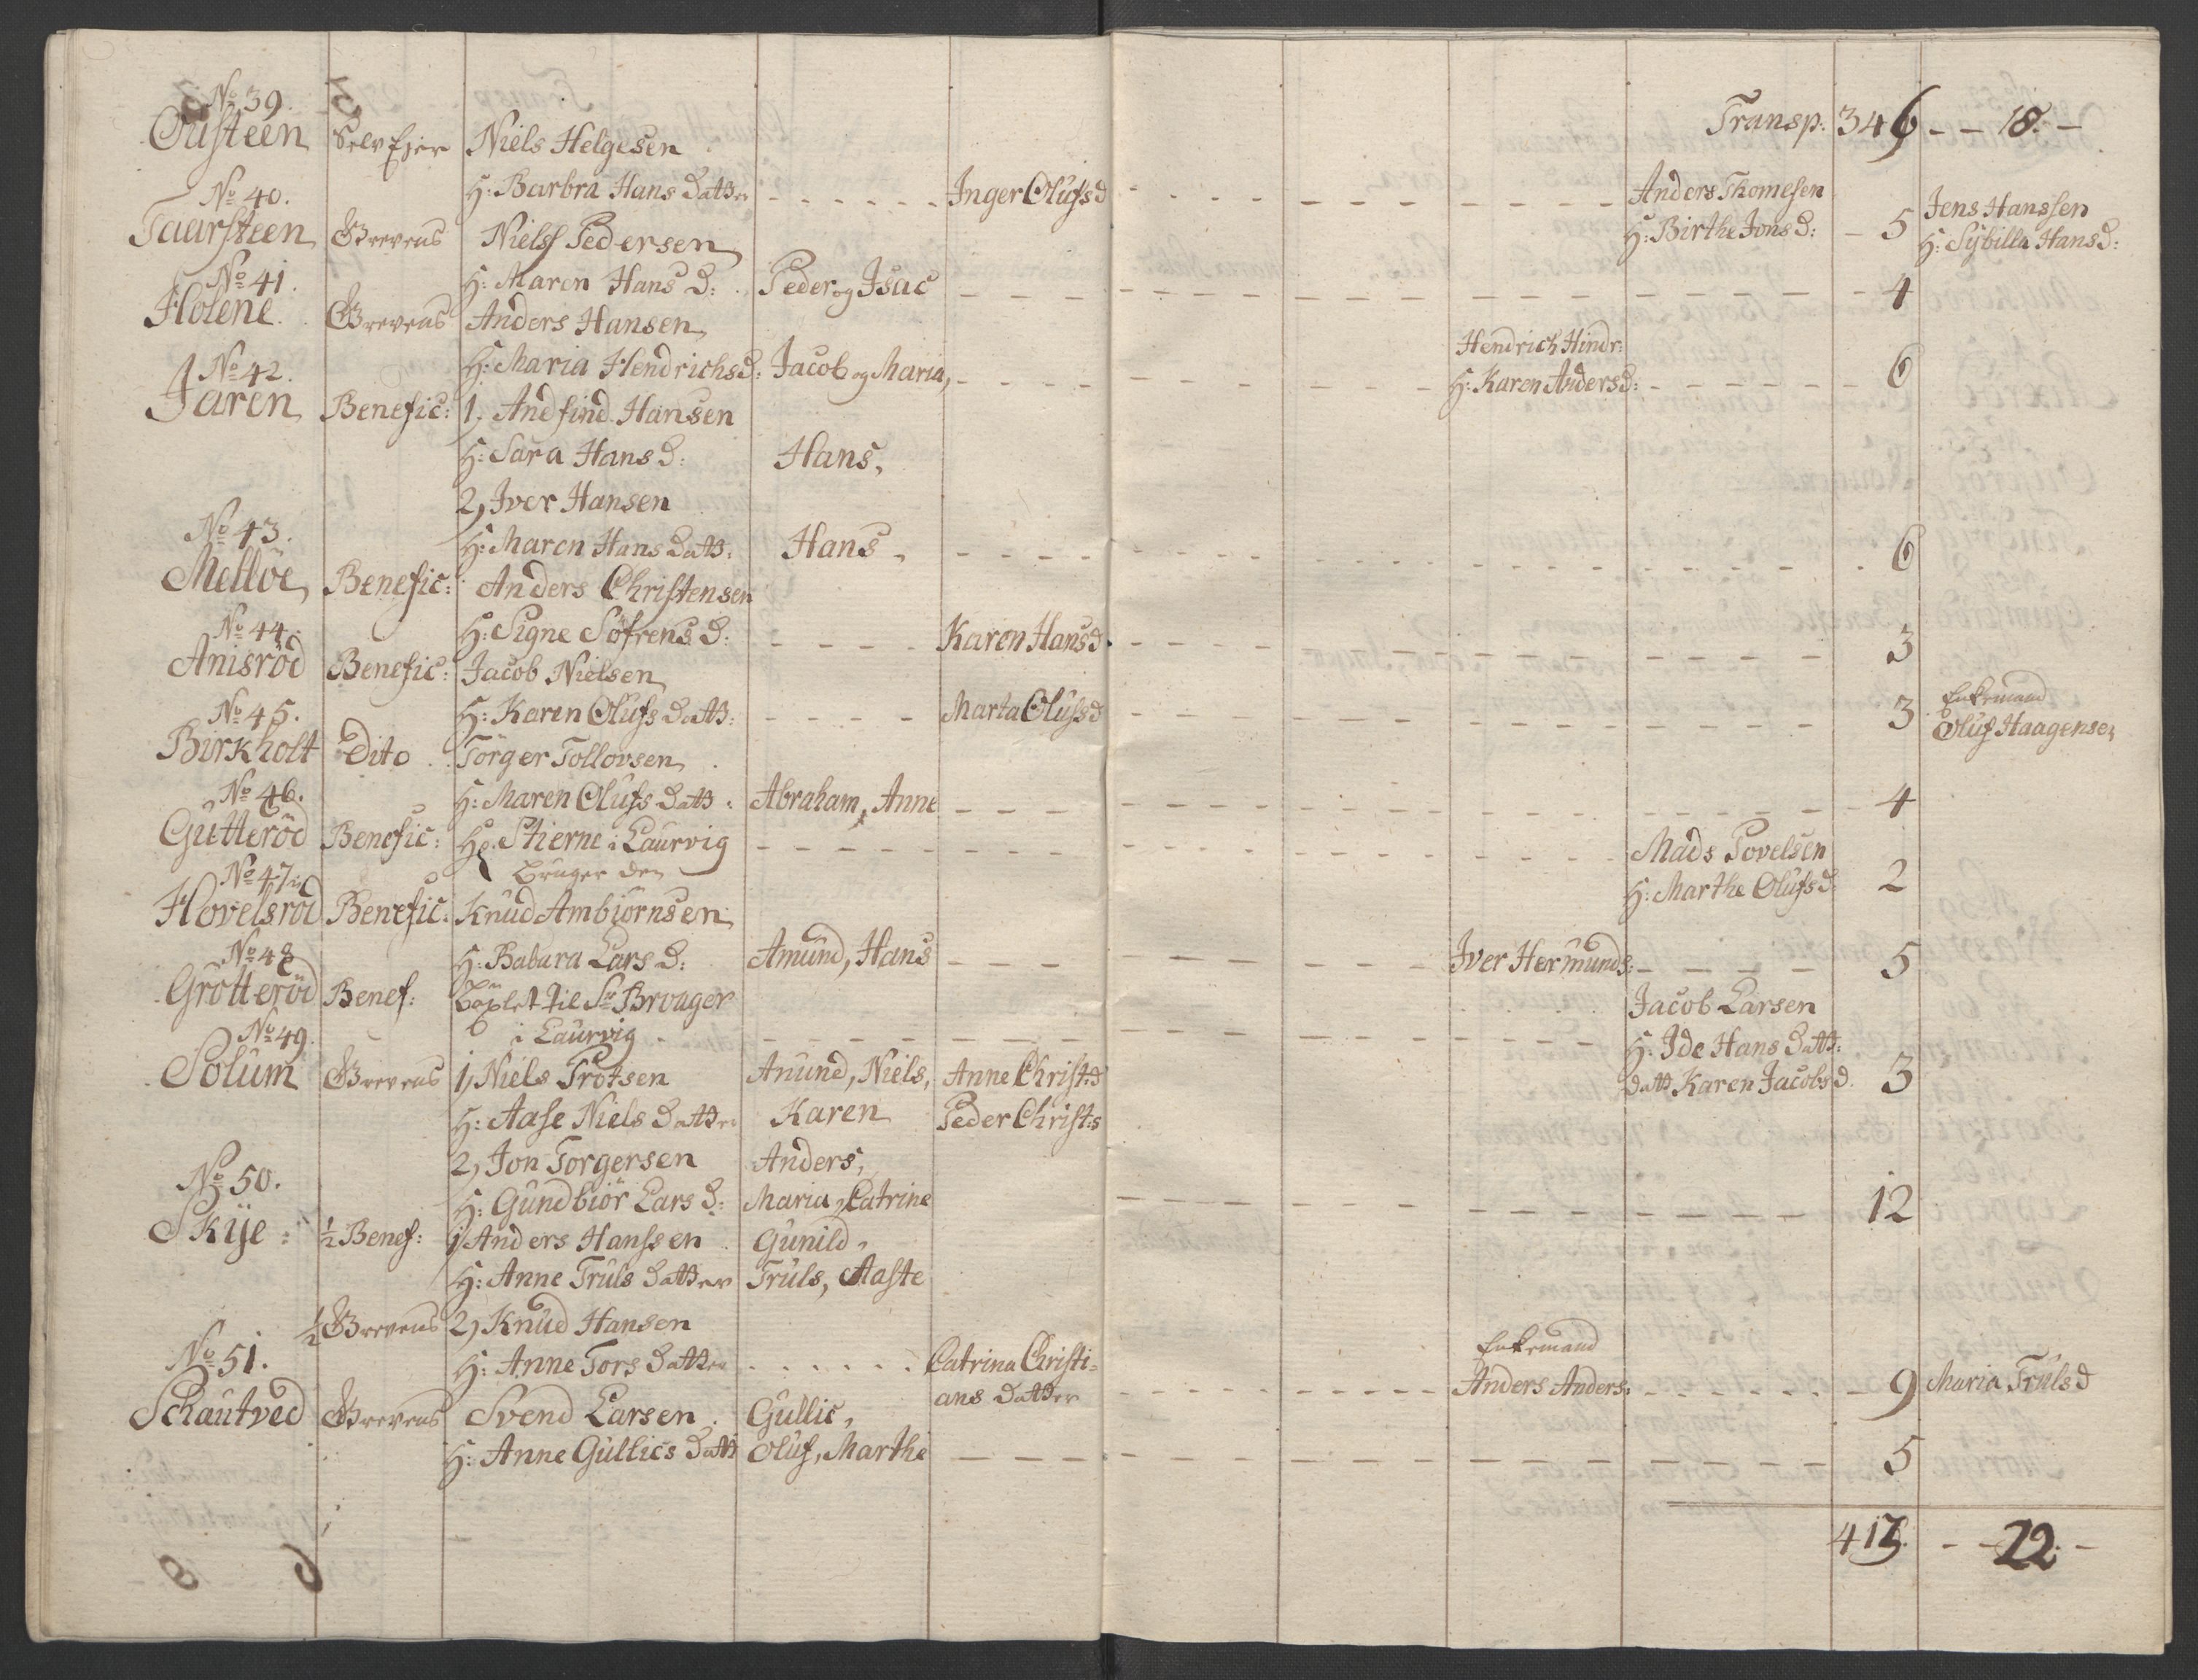 No 39.
Ousteen Selv Ejer Niels Helgesen Transp: 346 - - 18. -
H: Barbra Hans Datter Inger Olufsd Anders Thomesen
No 40. H: Birthe Jons D: 5 Jens Hanssen
Taarsteen Grevens Niels Pedersen H: Sybilla Hans D:
H: Maren Hans D: Peder og Isac 4
No 41.
Holene Grevens Anders Hansen
H: Maria Hendrichsd: Jacob og Maria, Hendrich Hindr:
H: Karen Andersd: 6
No 42.
Jaren Benefic: 1, Andfind Hansen
H: Sara Hans D: Hans,
2, Iver Hansen
H: Maren Hans Datt: Hans, 6
No 43.
Melløe Benefic: Anders Christensen
H: Signe Søfrens D: Karen Hansd. 3
No 44.
Anisrød Benefic: Jacob Nielsen
H: Karen Olufs Datt: Marta Olufsd 3 Enkemand
Oluf Haagensen
No 45.
Birkholt Dito Torger Tollovsen
H: Maren Olufs Datt: Abraham, Anne 4
No 46.
Gutterød Benefic: Hr. Stierne i Laurvig Mads Povelsen
bruger den H: Marthe Olufsd: 2
No 47.
Hovelsrød Benefic: Knud Ambiørnsen
H: Babara Lars D: Amund, Hans Iver Hermunds: 5
No 48
Grotterød Benef: Bøxlet til Sr Brvager Jacob Larsen
i Laurvig H: Ide Hans Datt:
Datt Karen Jacobs D. 3
No 49.
Solum Grevens 1, Niels Trotsen Anund, Niels, Anne Christ:d
H: Aase Niels Datter Karen Peder Christ:s
2, Jon Torgersen Anders,
H: Gundbiør Lars D: Maria, Catrine 12
No 50.
Skije: 1/2 Benef: 1, Anders Hanssen Gunild,
H: Anne Truls Datter Truls, Aaste
1/2 Grevens 2, Knud Hansen
H: Anne Tors Datter Catrina Christi= Enkemand
ans Datter Anders Anders: 9 Maria Trulsd
No 51.
Schautved Grevens Svend Larsen Gullic,
H: Anne Gullics Datt Oluf, Marthe 5
413. - - 22. -